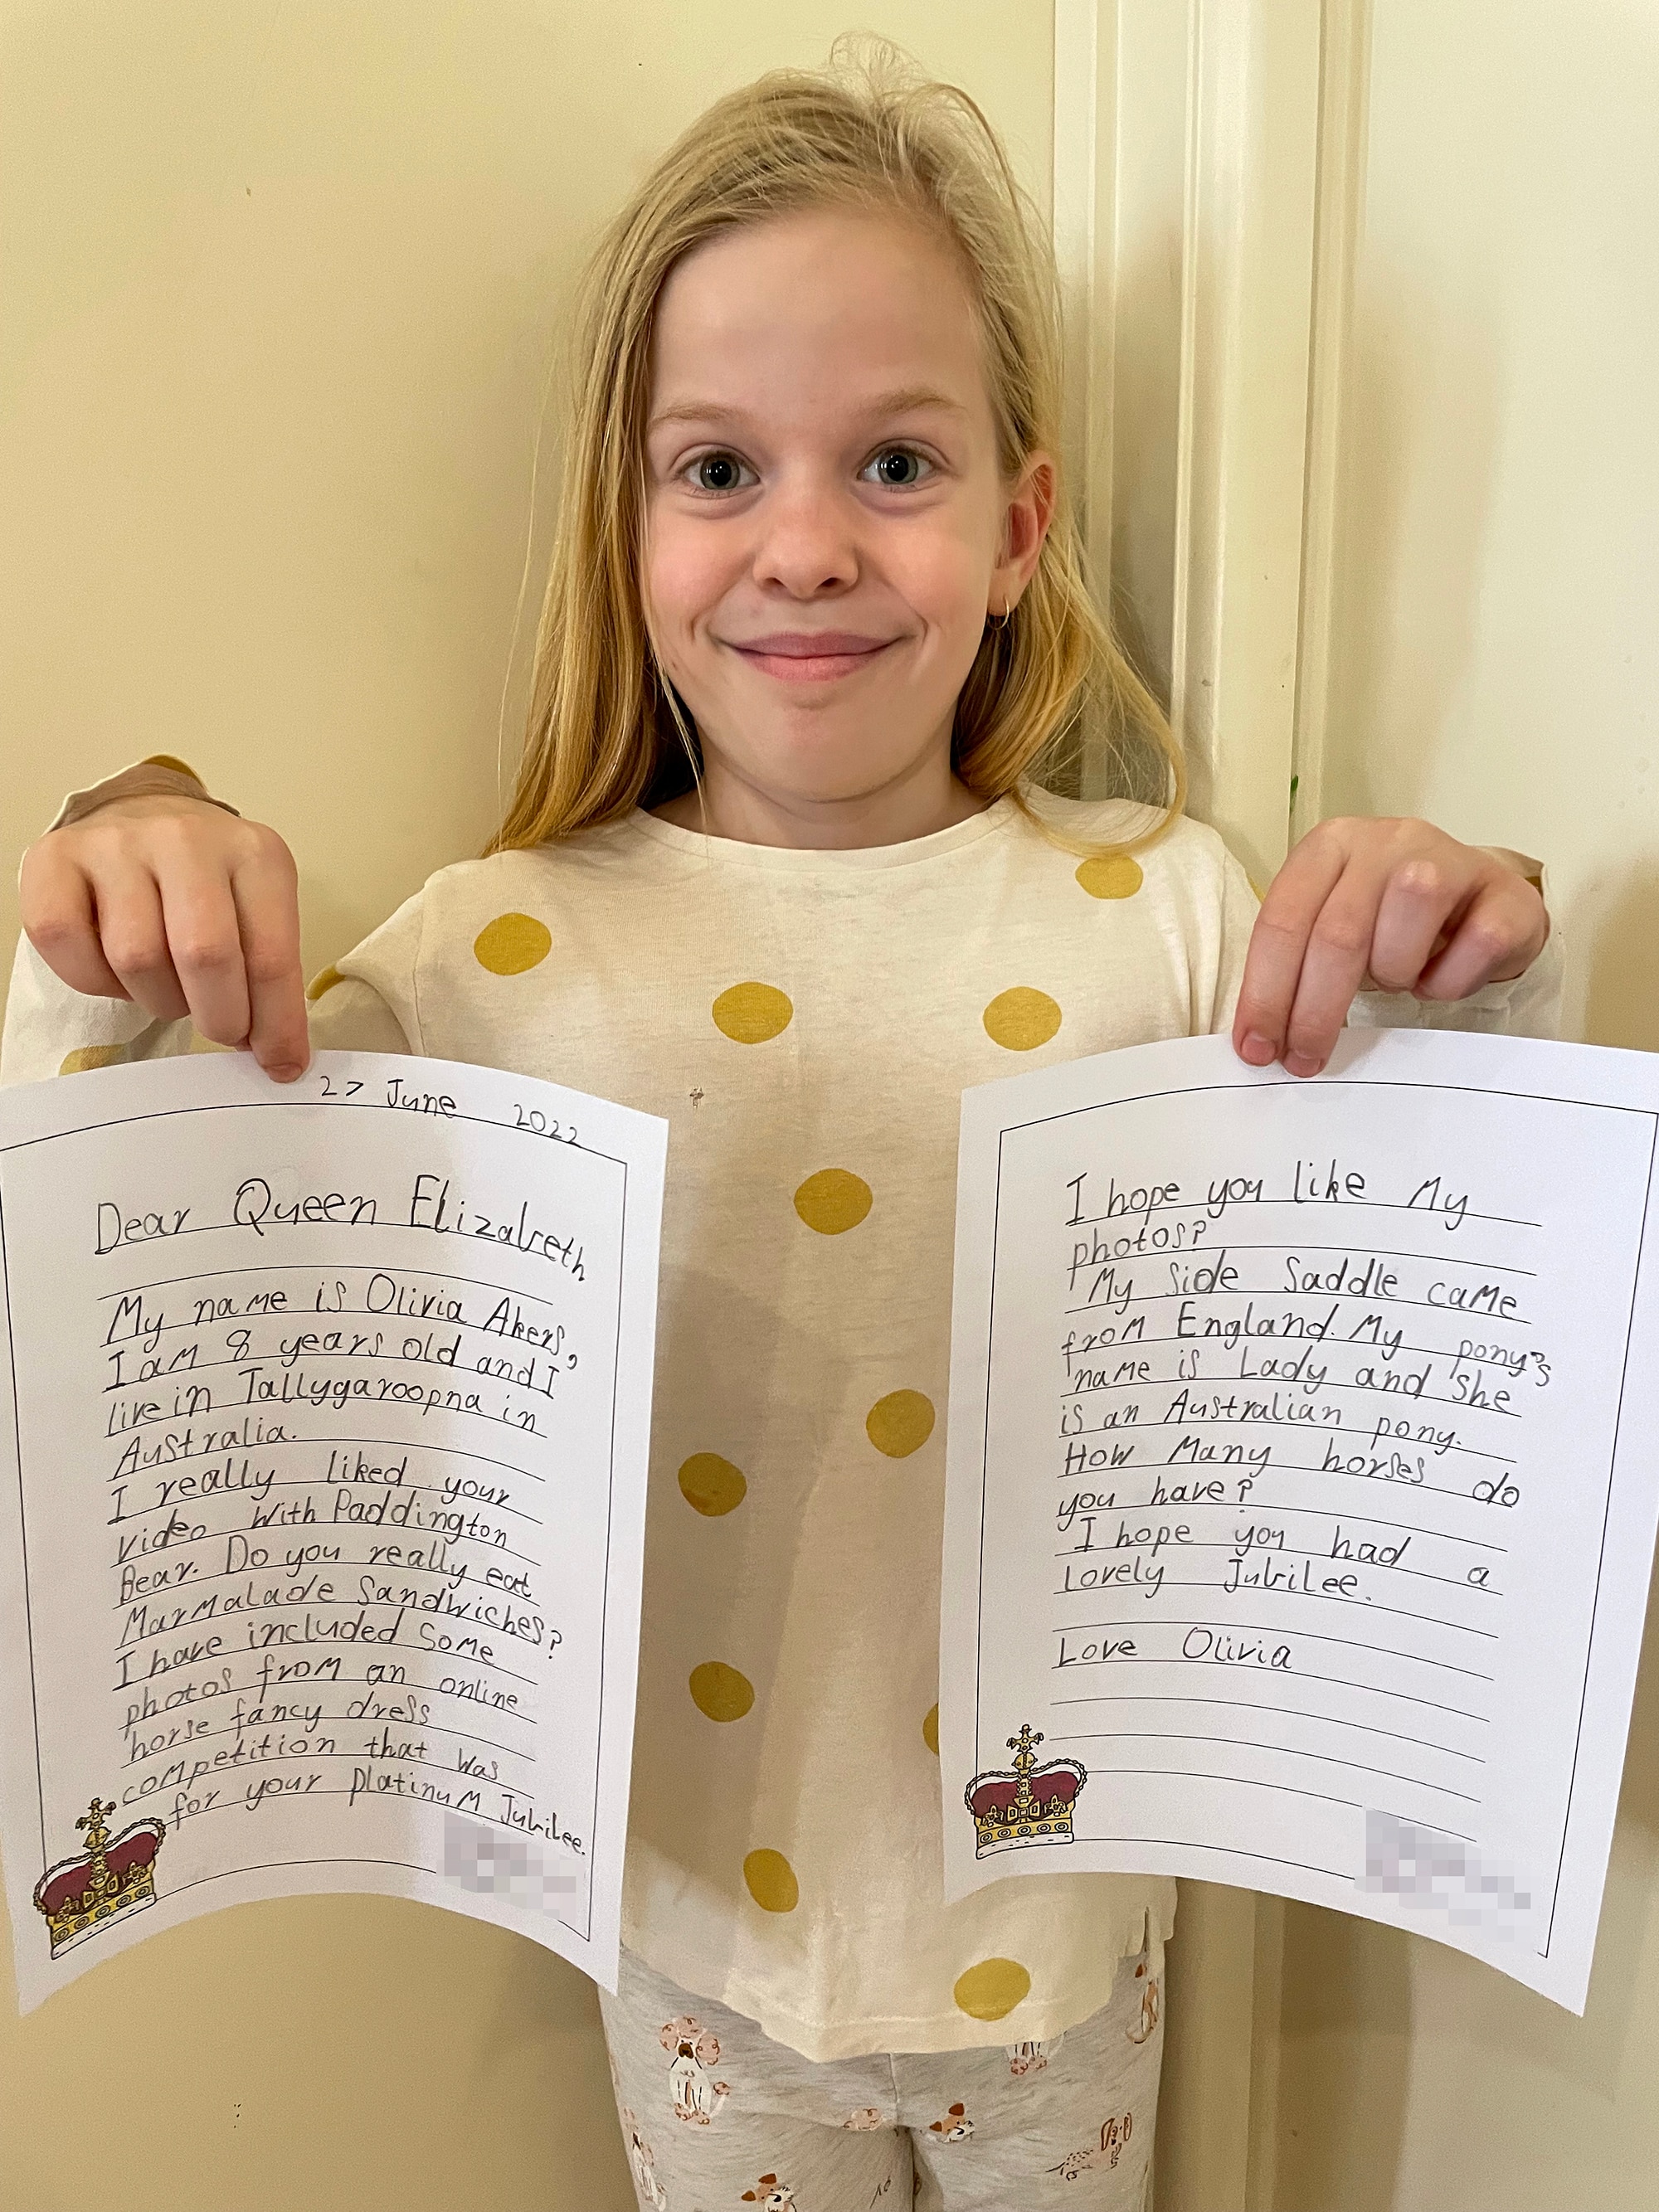 27 June 2022
Dear Queen Elizabeth
My name is Olivia Akers,
I am 8 years old and I
live in Tallygaroopna in
Australia.
I really liked your
video with Paddington
Bear. Do you really eat
Marmalade Sandwiches?
I have included Some
photos from an online
horse fancy dress
competition that was
for your platinum Jubilee.
I hope you like My
photos?
My Side Saddle came
from England. My pony's
name is Lady and she
is an Australian pony.
How Many horses do
you have?
I hope you had a
lovely Jubilee.
Love Olivia